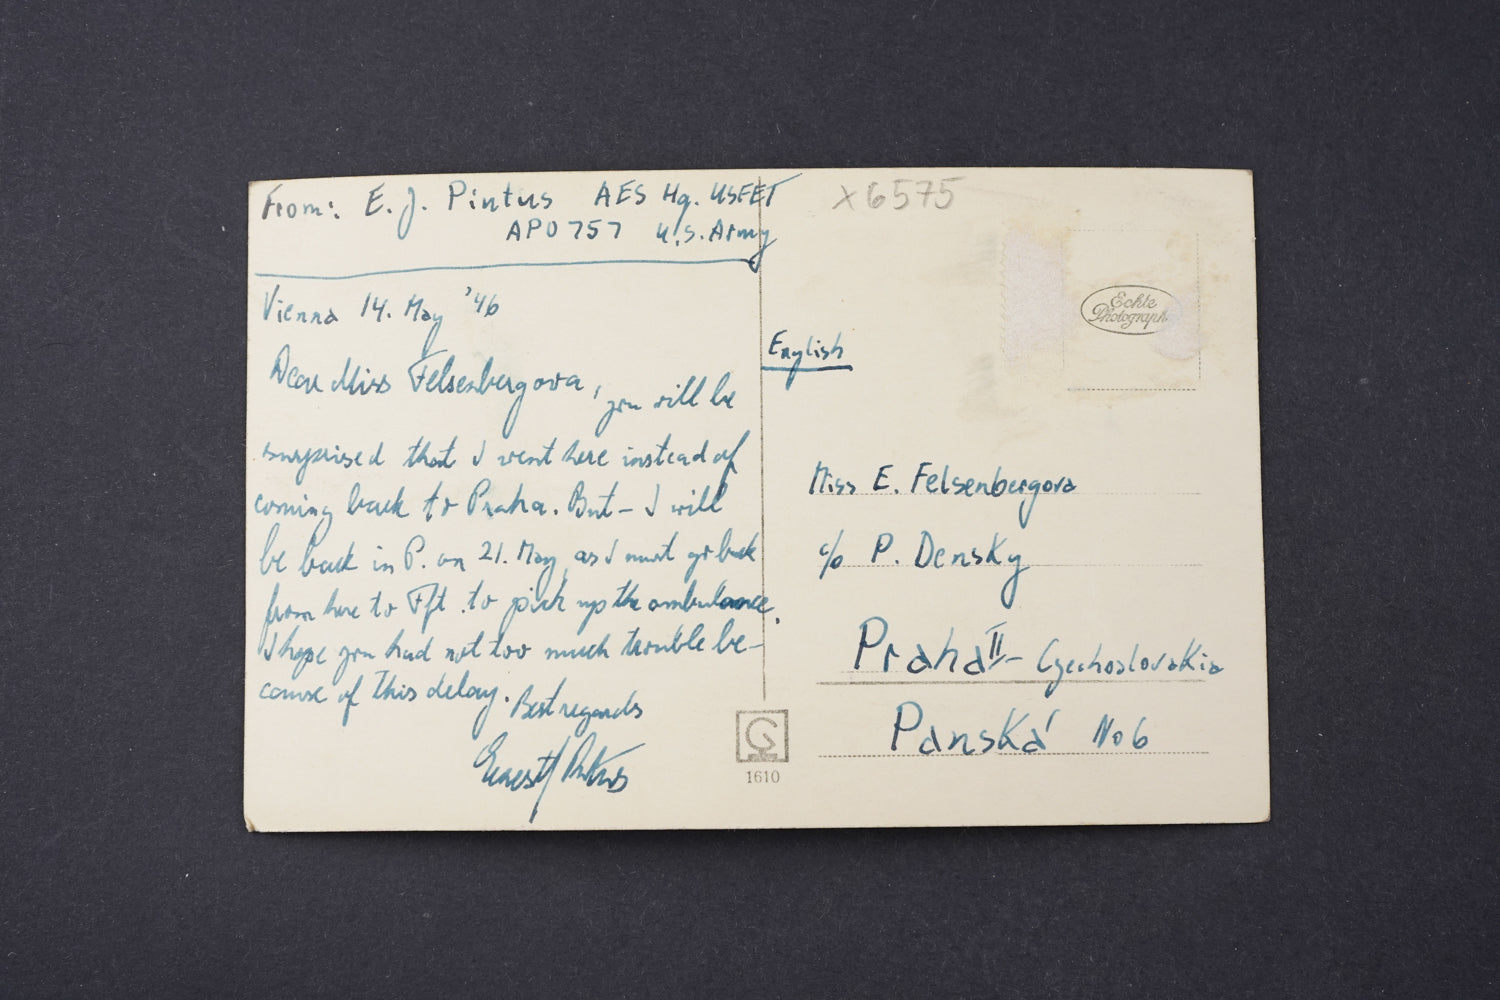 From: E. J. Pintus AES Hq. USFET
APO 757 U.S. Army
Vienna 14. May '46
Dear Miss Felsenbergova,
you will be
surprised that I went here instead of
coming back to Praha. But – I will
be back in P. on 21. May, as I must go back
from here to Fft. to pick up the ambulance.
I hope you had not too much trouble be-
cause of this delay.
Best regards
Ernest J Pintus
X6575
Echte
Photograph
English
Miss E. Felsenbergova
c/o P. Densky
Praha II – Czechoslovakia
Panská No 6
1610